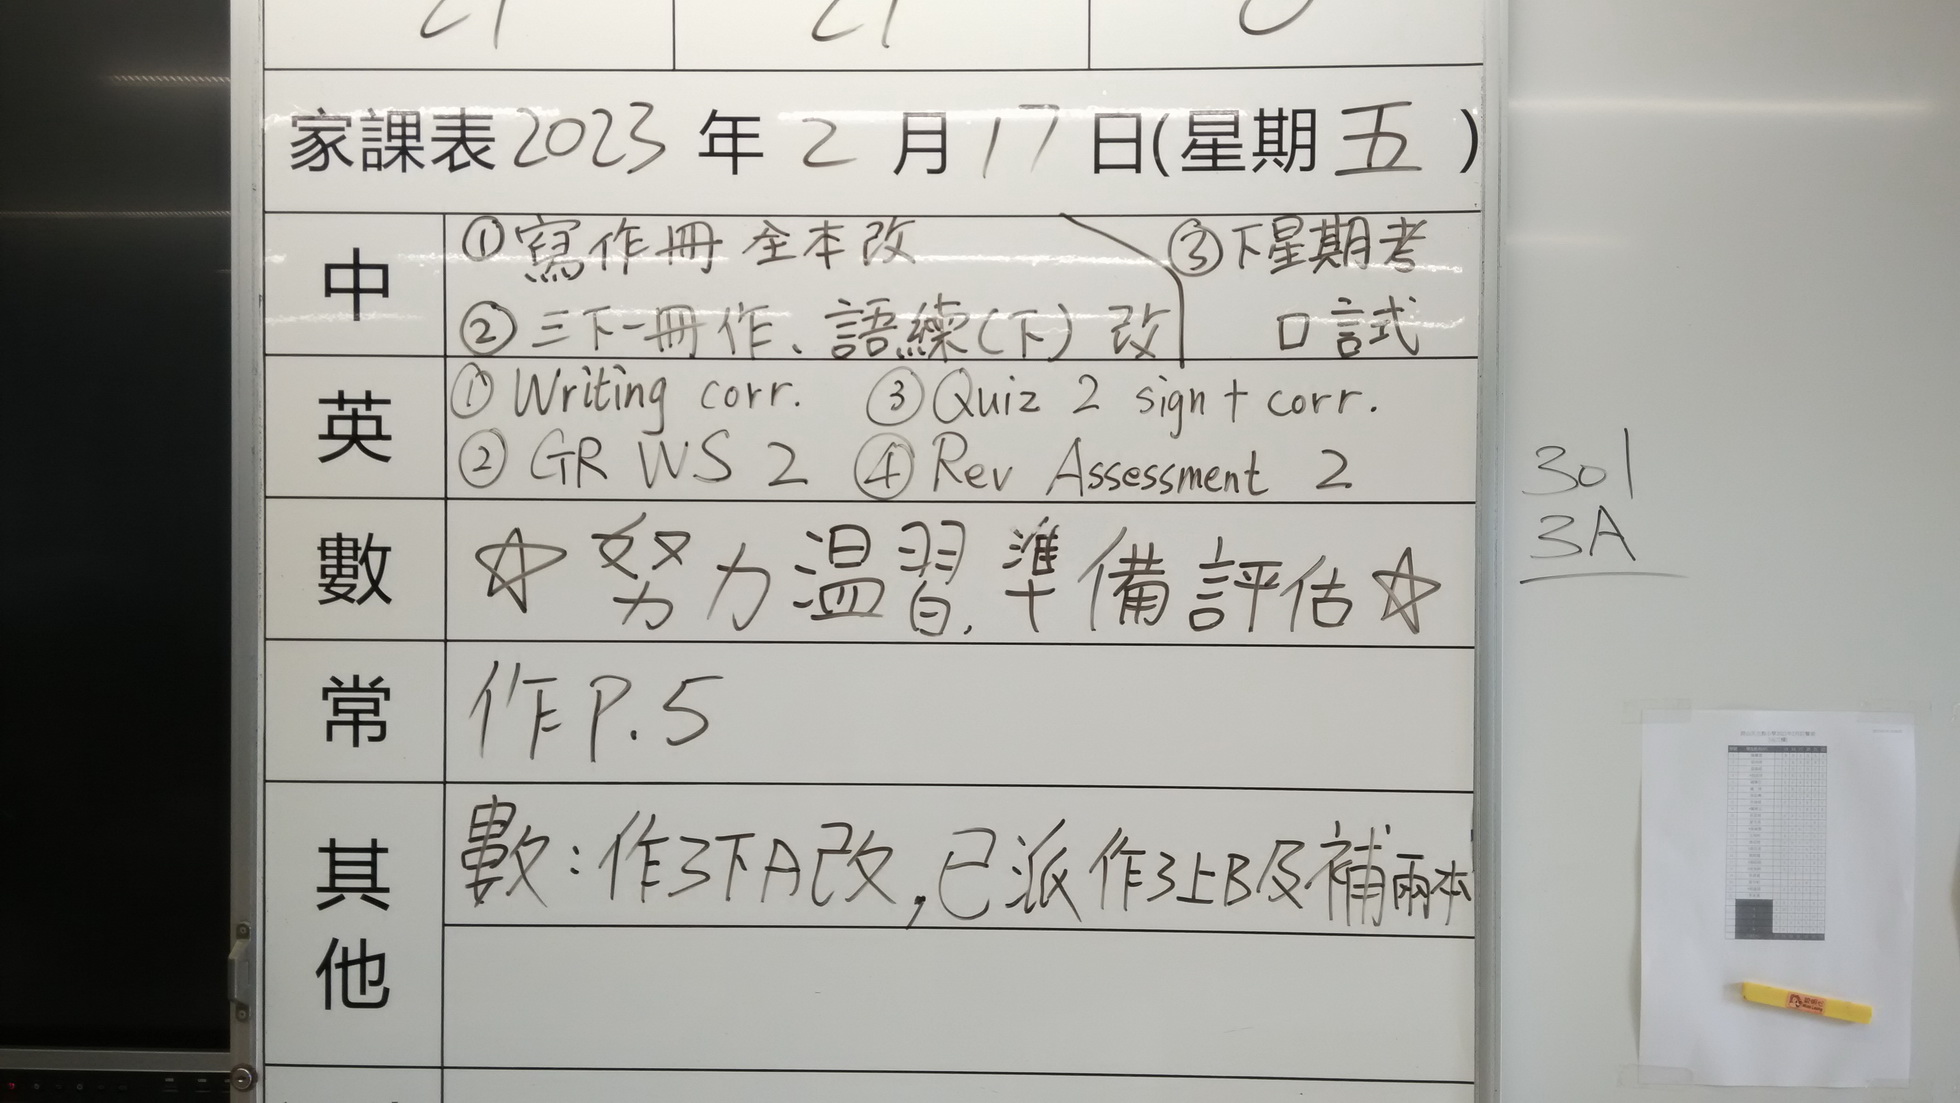 家課表2023年2月17日(星期五)
中
①寫作冊 全本改
②三下一冊作、語練(下)改
③下星期考
口試
英
①Writing corr. ③Quiz 2 sign + corr.
②GR WS 2 ④Rev Assessment 2
數
☆努力溫習,準備評估☆
常
作P.5
其他
數:作3下A改,已派作3上B及補兩本
301
3A